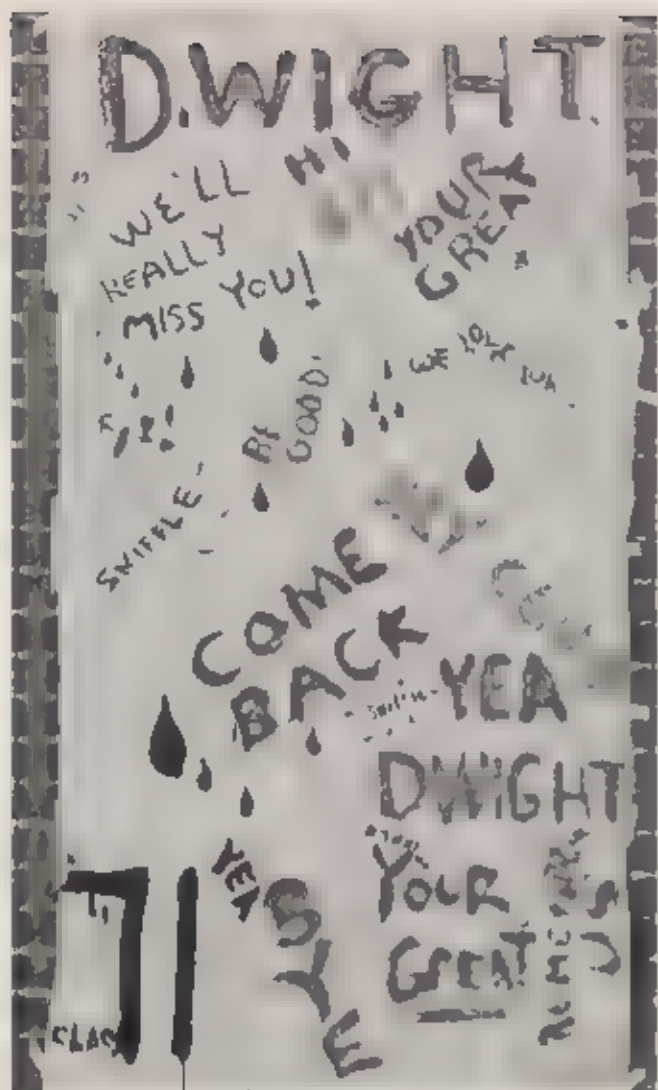 D.WIGHT
HI
WE'LL
REALLY
MISS YOU!
YOUR
GREAT
WE LOVE YOU
BE
GOOD
SNIFFLE
COME
BACK
YEA
DWIGHT
YOUR
GREAT
YEA
BYE
71
CLASS
US